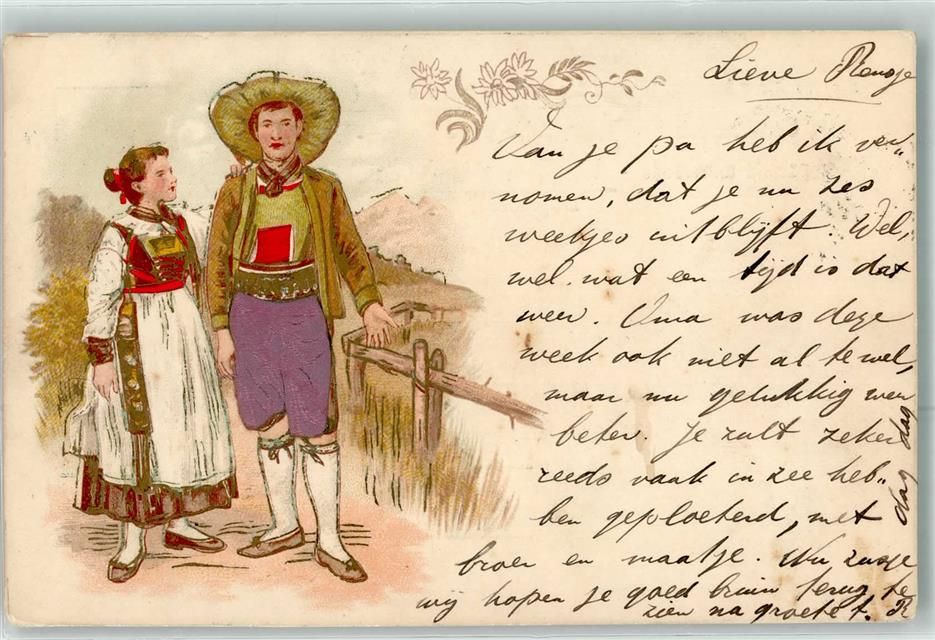 Lieve Rensje
Van je pa heb ik ver„
nomen, dat je nu zes
weekjes uitblijft. Wel,
wel, wat een tijd is dat
weer. Oma was deze
week ook niet al te wel,
maar nu gelukkig weer
beter. Je zult zeker
reeds vaak in zee heb„
ben geploeterd, met
broer en maatje. Nu, zusje
wij hopen je goed bruin terug te
zien na groete t. R
dag dag